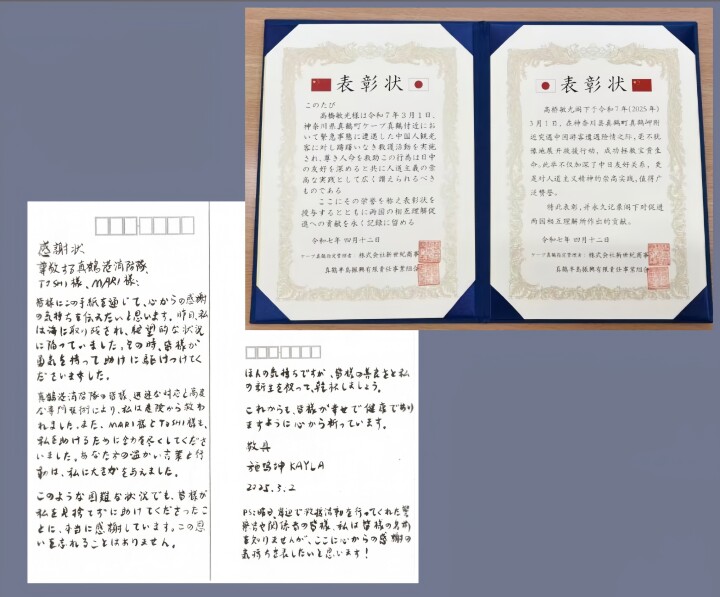 表彰状
このたび
高橋敏光様は令和7年3月1日、
神奈川県真鶴町ケープ真鶴付近にお
いて緊急事態に遭遇した中国人観光
客に対し躊躇いなき救護活動を実施
され、尊き人命を救助この行為は日中
の友好を深めると共に人道主義の崇
高な実践として広く讃えられるべき
ものである
ここにその栄誉を称え表彰状を
授与するとともに両国の相互理解促
進への貢献を永く記録に留める
令和七年 四月十二日
ケープ真鶴指定管理者:株式会社新世紀商事
真鶴半島振興有限責任事業組合
表彰状
高橋敏光阁下于令和7年(2025年)
3月1日,在神奈川县真鹤町真鹤岬附
近突遇中国游客遭遇险情之际,毫不犹
豫地展开救援行动,成功拯救宝贵生
命。此举不仅加深了中日友好关系,更
是对人道主义精神的崇高实践,值得广
泛赞誉。
特此表彰,并永久记录阁下对促进
两国相互理解所作出的贡献。
令和七年 四月十二日
ケープ真鶴指定管理者:株式会社新世紀商事
真鶴半島振興有限責任事業組合
感謝状
尊敬する真鶴港消防隊、
TOSHI様、MARI様:
皆様にこの手紙を通じて、心からの感謝
の気持ちを伝えたいと思います。昨日、私
は海に取り残され、絶望的な状況
に陥っていました。その時、皆様が
勇気を持って助けに駆けつけてく
ださいました。
真鶴港消防隊の皆様、迅速な対応と高度
な専門技術により、私は危険から救わ
れました。また、MARI様とTOSHI様も、
私を助けるために全力を尽くしてくださ
いました。あなた方の温かい言葉と行
動は、私に大きな力を与えました。
このような困難な状況でも、皆様が
私を見捨てずに助けてくださったこ
とに、本当に感謝しています。この思
いを忘れることはありません。
ほんの気持ちですが、皆様の善良さと私
の新生を祝って、乾杯しましょう。
これからも、皆様が幸せで健康であり
ますように心から祈っています。
敬具
KAYLA
2025.3.2
PS:昨日、岸辺で救援活動を行ってくれた警
察官や関係者の皆様、私は皆様の名前
を知りませんが、ここに心からの感謝の
気持ちを表したいと思います!